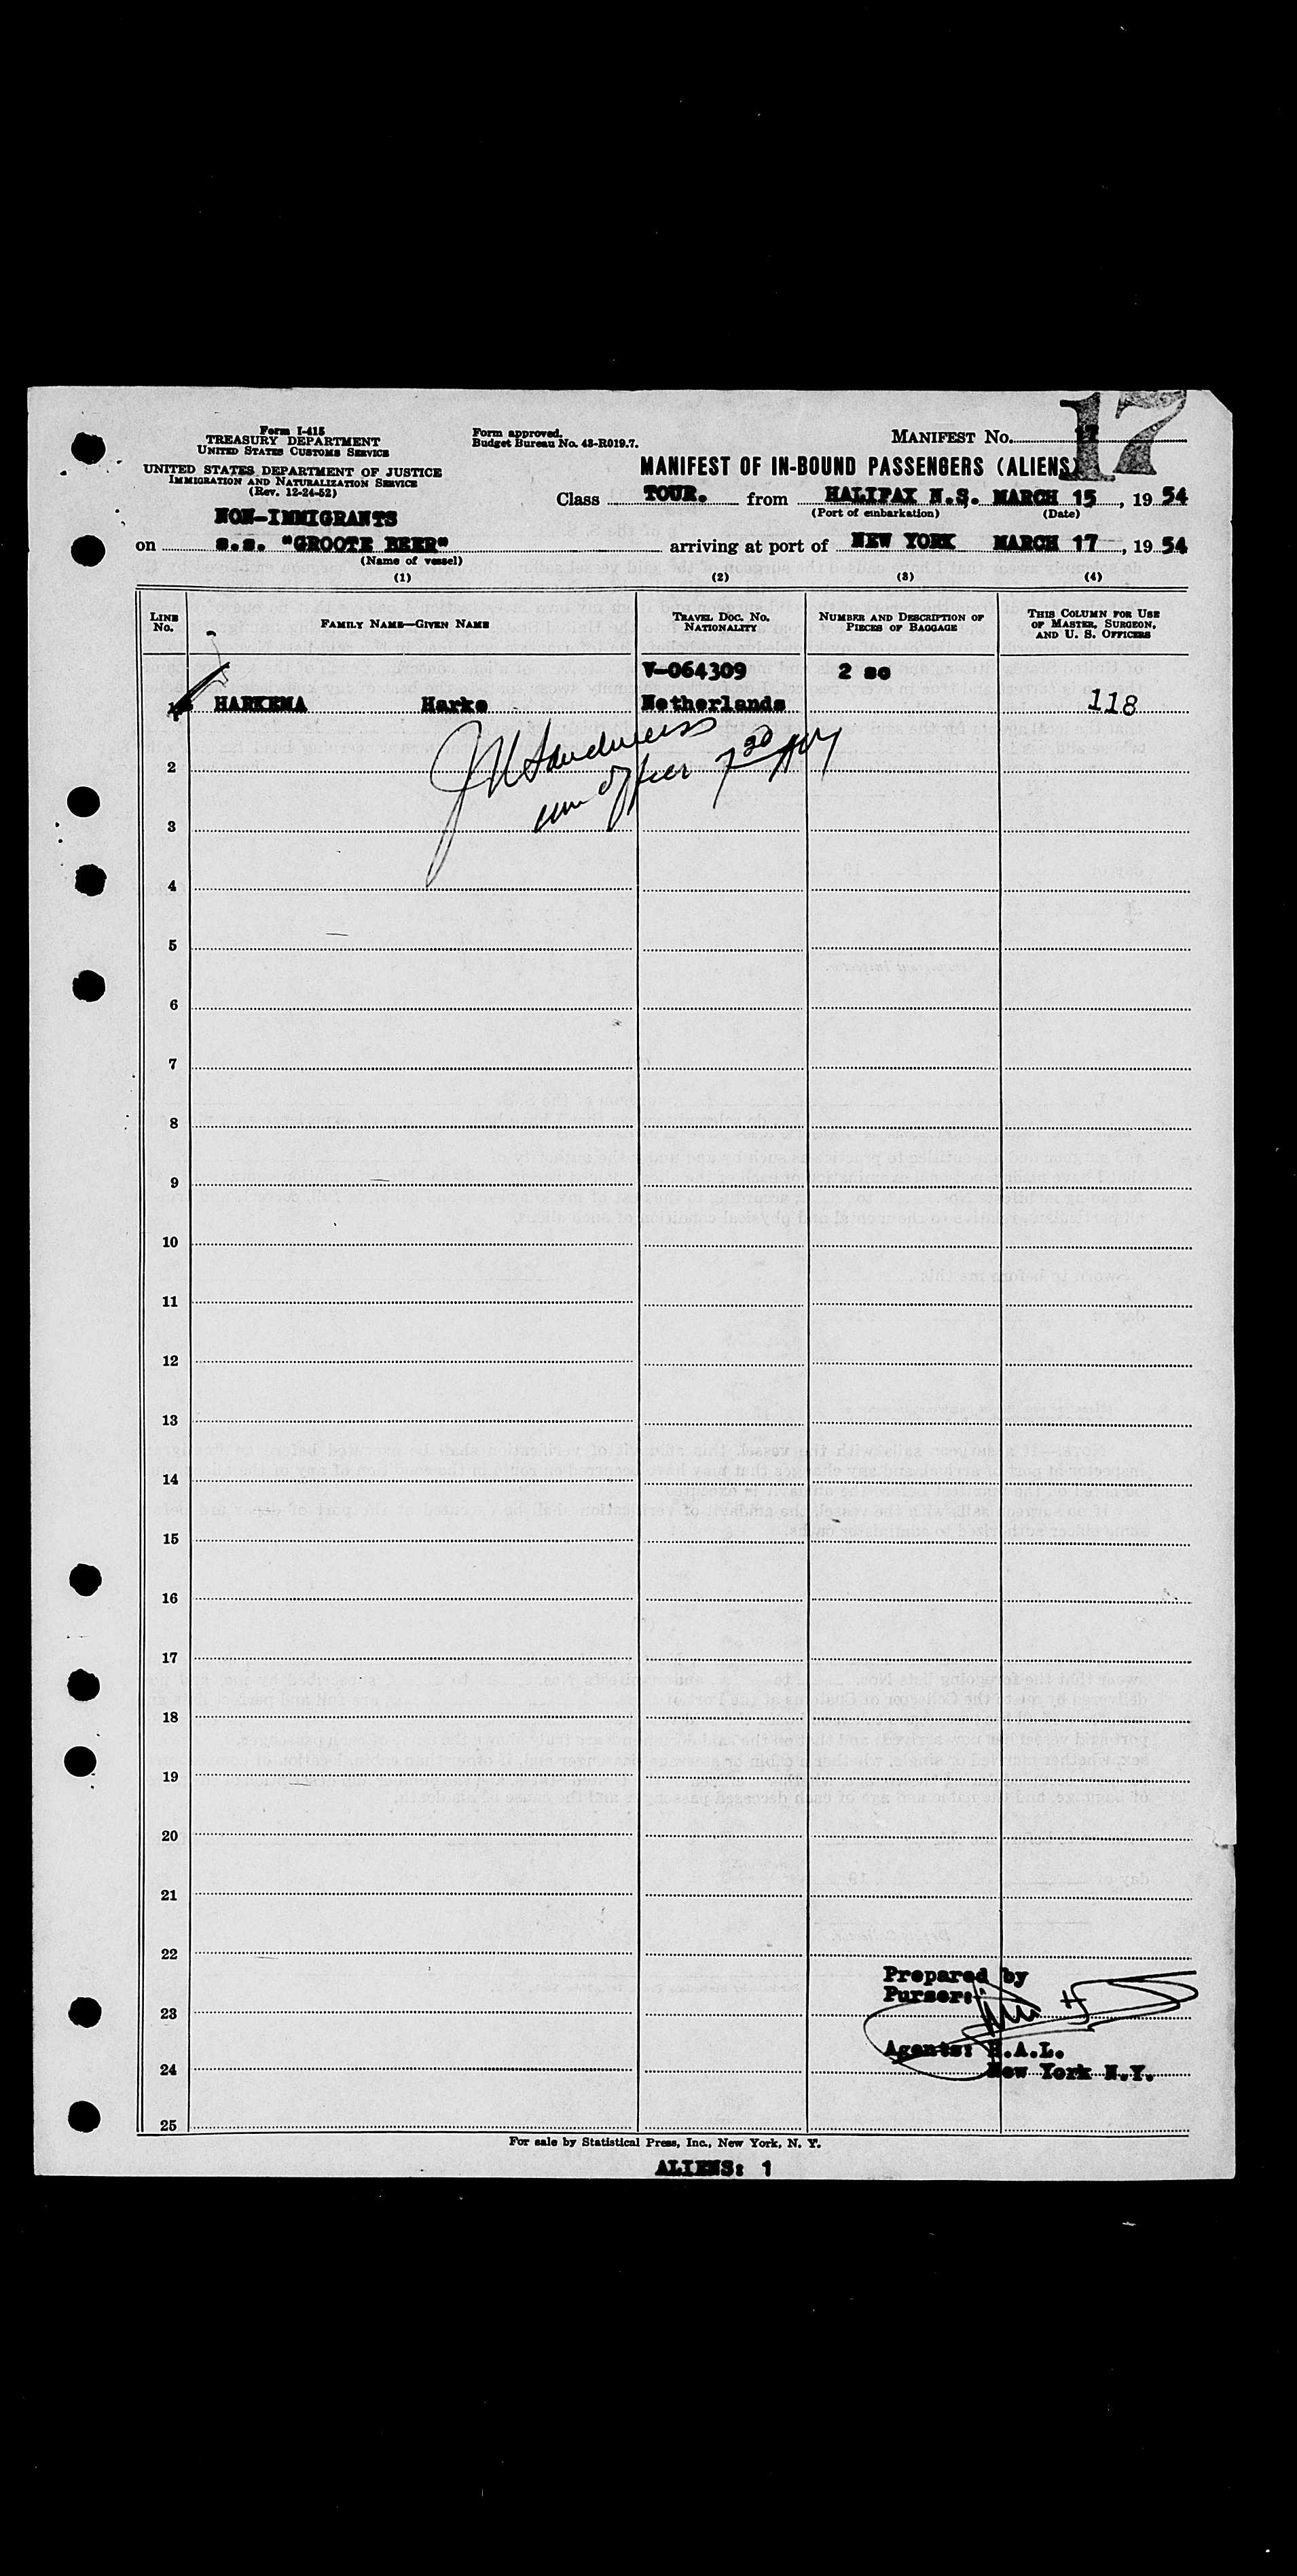 17
Form I-415
TREASURY DEPARTMENT
UNITED STATES CUSTOMS SERVICE
UNITED STATES DEPARTMENT OF JUSTICE
IMMIGRATION AND NATURALIZATION SERVICE
(Rev. 12-24-52)
Form approved.
Budget Bureau No. 43-R019.7.
MANIFEST No. 17
MANIFEST OF IN-BOUND PASSENGERS (ALIENS)
Class TOUR. from HALIFAX N.S. MARCH 15, 19 54
(Port of embarkation) (Date)
NON-IMMIGRANTS
on s.s. "GROOTE BEER" arriving at port of NEW YORK MARCH 17, 19 54
(Name of vessel)
(1) (2) (3) (4)
LINE No. FAMILY NAME—GIVEN NAME TRAVEL DOC. No. NATIONALITY NUMBER AND DESCRIPTION OF PIECES OF BAGGAGE THIS COLUMN FOR USE OF MASTER, SURGEON, AND U. S. OFFICERS
V-064309 2 sc
1 HARKEMA Harke Netherlands 118
2
officer
3
4
5
6
7
8
9
10
11
12
13
14
15
16
17
18
19
20
21
22
Prepared by
Purser:
23
Agents: H.A.L.
24 New York N.Y.
25
For sale by Statistical Press, Inc., New York, N. Y.
ALIENS: 1